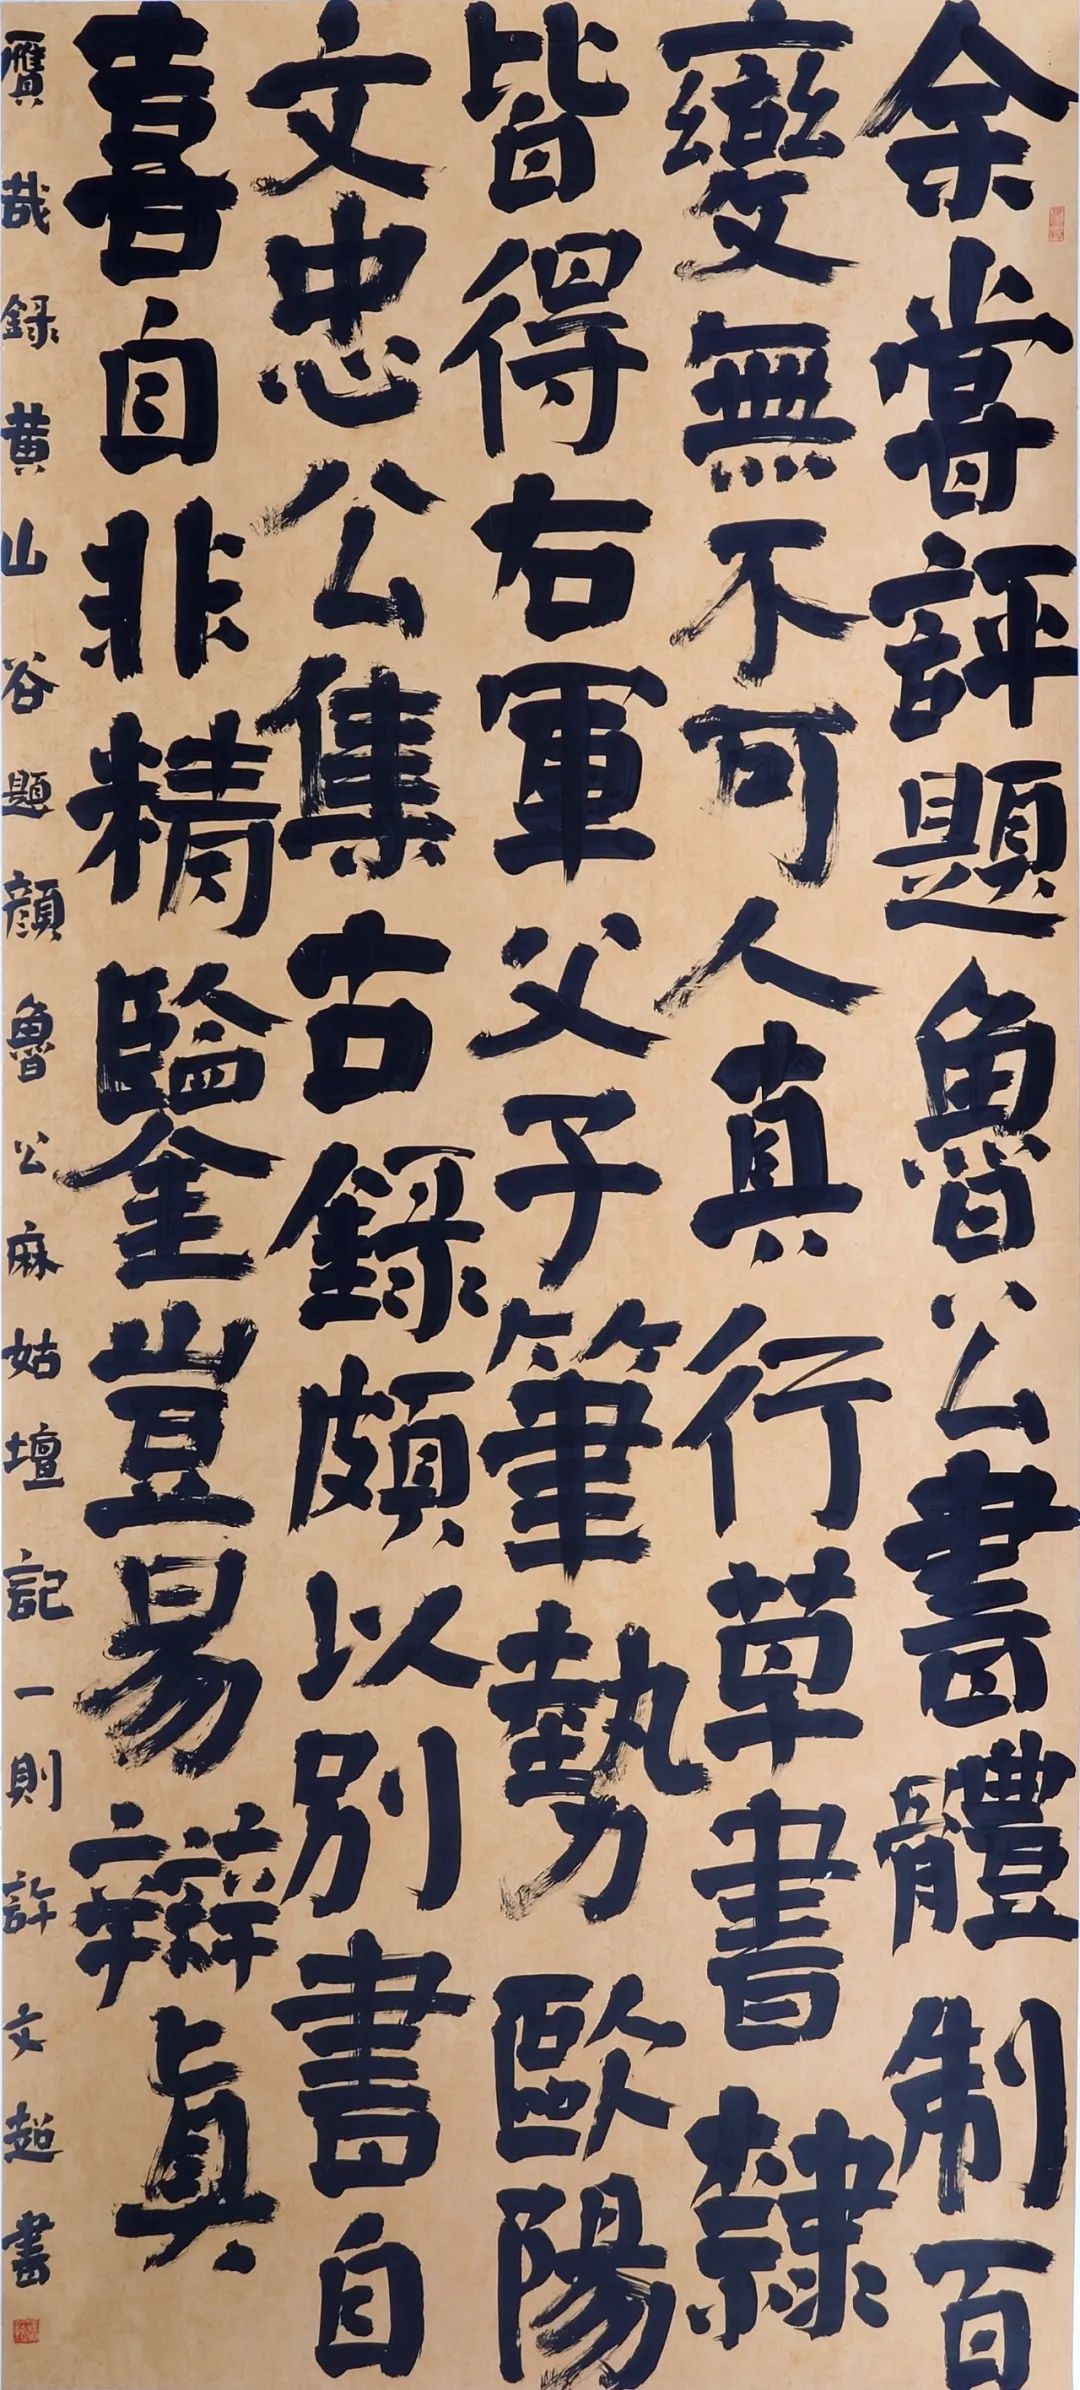 余嘗評題魯公書體制百
變無不可人真行草書隸
皆得右軍父子筆勢歐陽
文忠公集古錄頗以別書自
喜自非精鑒豈易辯真
贋哉錄黃山谷題顏魯公麻姑壇記一則許文超書